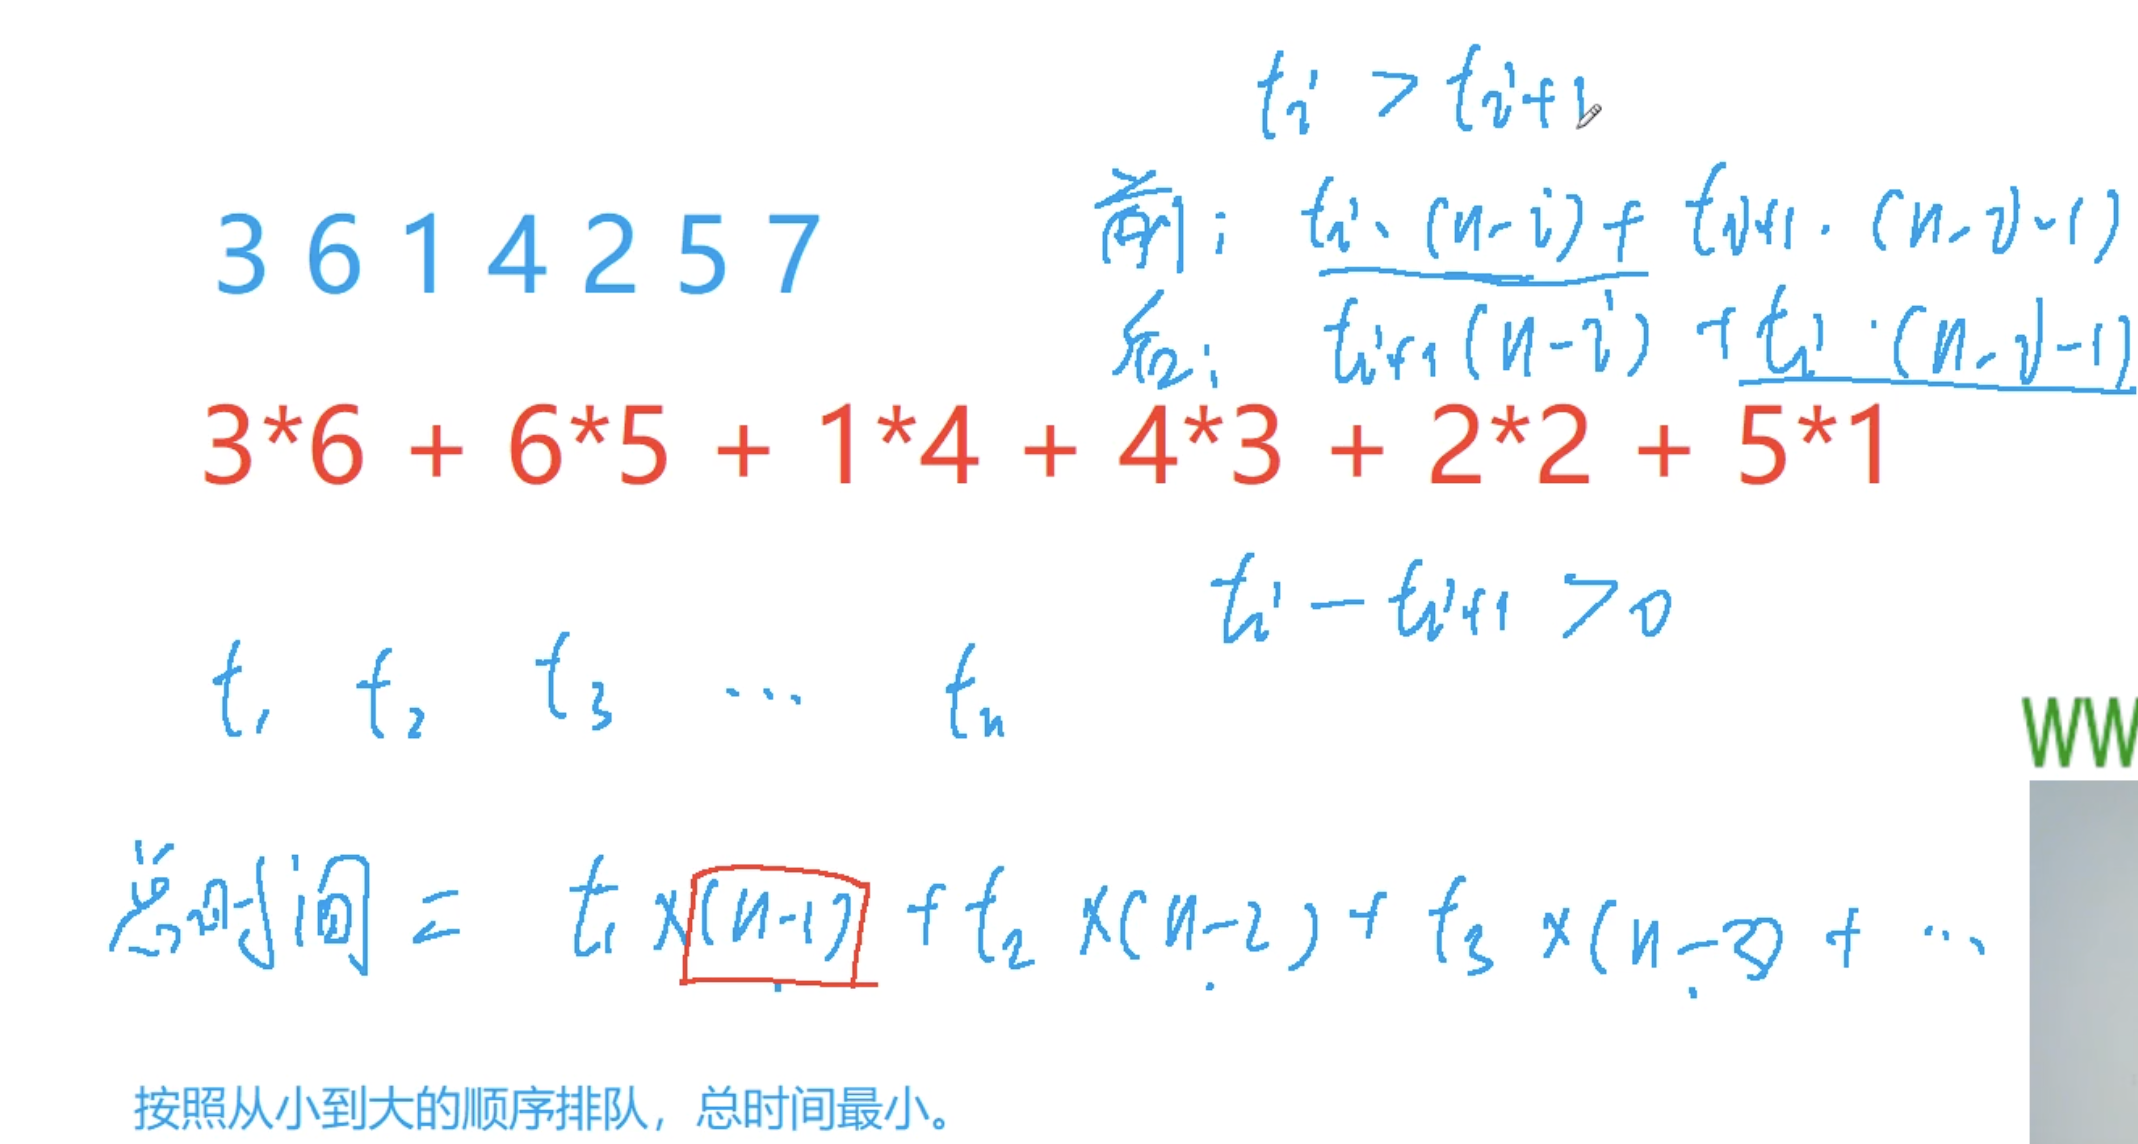 tᵢ > tᵢ₊₁
3 6 1 4 2 5 7
前: tᵢ·(n-i)+ tᵢ₊₁·(n-i-1)
后: tᵢ₊₁(n-i) + tᵢ·(n-i-1)
3*6 + 6*5 + 1*4 + 4*3 + 2*2 + 5*1
tᵢ - tᵢ₊₁ > 0
t₁ t₂ t₃ ··· tₙ
WW
总时间 = t₁ ×(n-1) + t₂ ×(n-2) + t₃ ×(n-3) + ···
按照从小到大的顺序排队，总时间最小。